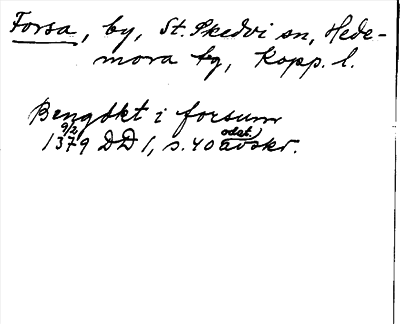 Forsa, by, St. Skedvi sn, Hede-
mora tg, Kopp. l.
Bengtkt i forsum
9/2 1379 DD 1, s. 40 odat.) avskr.